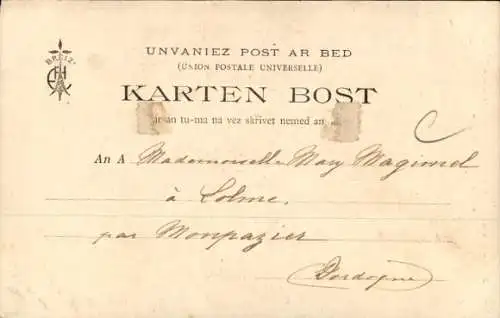 BREIZ
UNVANIEZ POST AR BED
(UNION POSTALE UNIVERSELLE)
KARTEN BOST
tu-ma na vez skrivet nemed an
An A Mademoiselle Mary Magimel
à Lolme.
par Monpazier
(Dordogne)